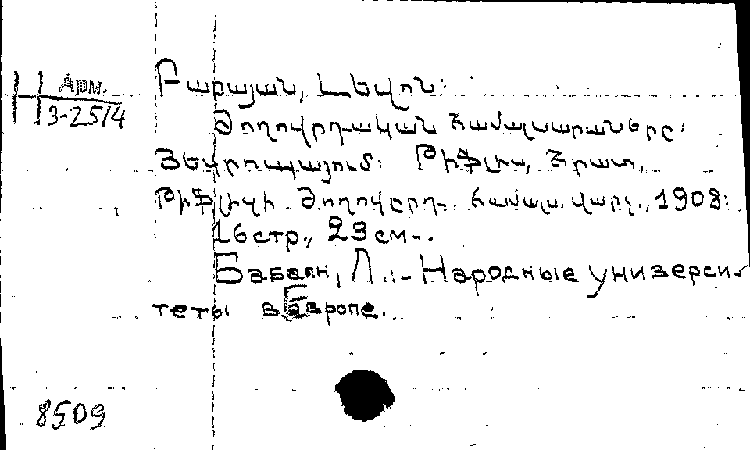 Арм.
Н 3-2514
Բաբայան, Լեվոն:
Ժողովրդական համալսարաները:
Յեվրոպայում: Թիֆլիս, Հրատ.
Թիֆլիսի Ժողովերդ. համալ. վարչ., 1908:
16стр., 23см..
Бабаян, Л.:- Народные университеты
теты в Европе.
8509